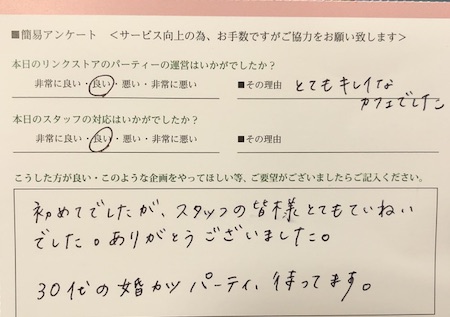 ■簡易アンケート ＜サービス向上の為、お手数ですがご協力をお願い致します＞
本日のリンクストアのパーティーの運営はいかがでしたか?
非常に良い・良い・悪い・非常に悪い ■その理由 とてもキレイな
カフェでした
本日のスタッフの対応はいかがでしたか?
非常に良い・良い・悪い・非常に悪い ■その理由
こうした方が良い・このような企画をやってほしい等、ご要望がございましたらご記入ください。
初めてでしたが、スタッフの皆様とてもていねい
でした。ありがとうございました。
30代の婚カツパーティ、待ってます。